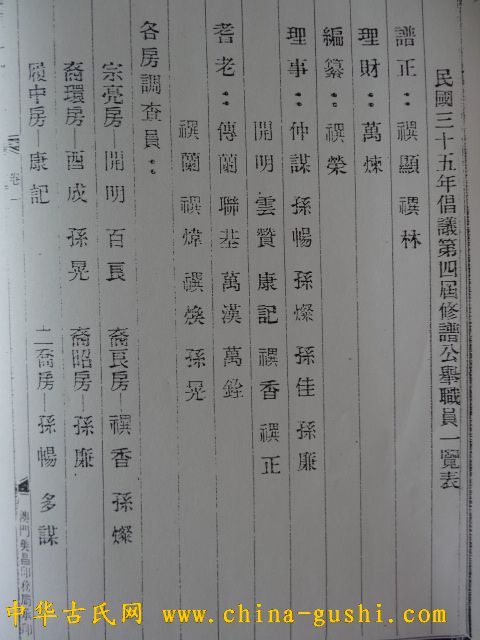 民國三十五年倡議第四屆修譜公舉職員一覽表
譜正：禩顯 禩林
理財：萬煉
編纂：禩榮
理事：仲謀 孫暢 孫燦 孫佳 孫廉
開明 雲贊 康記 禩香 禩正
耆老：傳蘭 聯基 萬漢 萬銓
禩蘭 禩煒 禩煥 孫晃
各房調查員：
宗亮房 開明 百長 裔長房—禩香 孫燦
裔環房 酉成 孫晃 裔昭房—孫廉
履中房 康記 二喬房—孫暢 多謀
卷一
澳門集昌印務局承印
中华古氏网 www.china-gushi.com